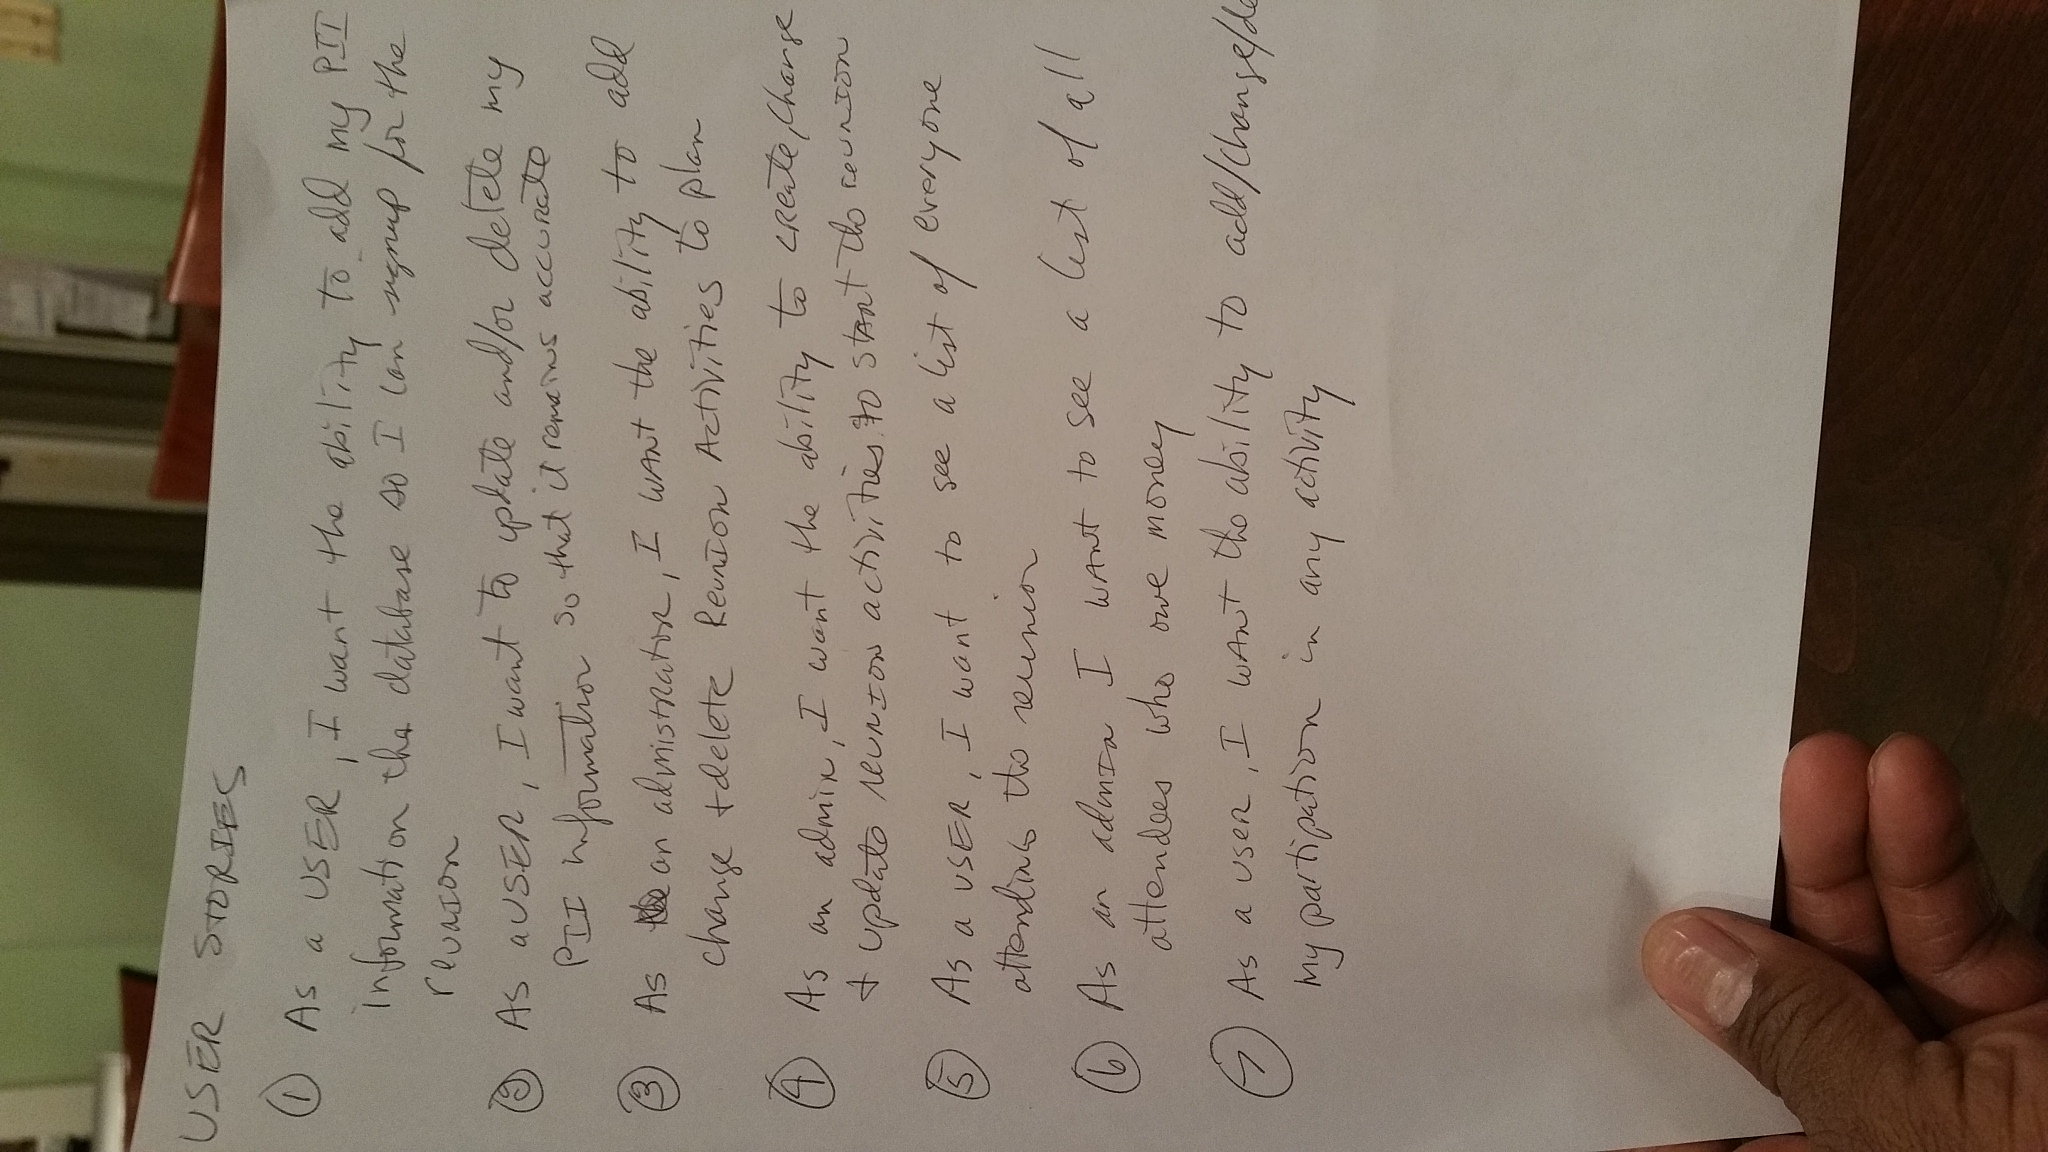 USER STORIES
① As a USER, I want the ability to add my PII
information the database so I can signup for the
reunion
② As a USER, I want to update and/or delete my
PII information so that it remains accurate
③ As an admistrator, I WANT the ability to add
change + delete Reunion Activities to plan
④ As an admin, I want the ability to create, change
+ update reunion activities to start the reunion
⑤ As a USER, I want to see a list of everyone
attending the reunion
⑥ As an admin I WANT to see a list of all
attendees who owe money
⑦ As a user, I WANT the ability to add/change/de
my partipation in any activity